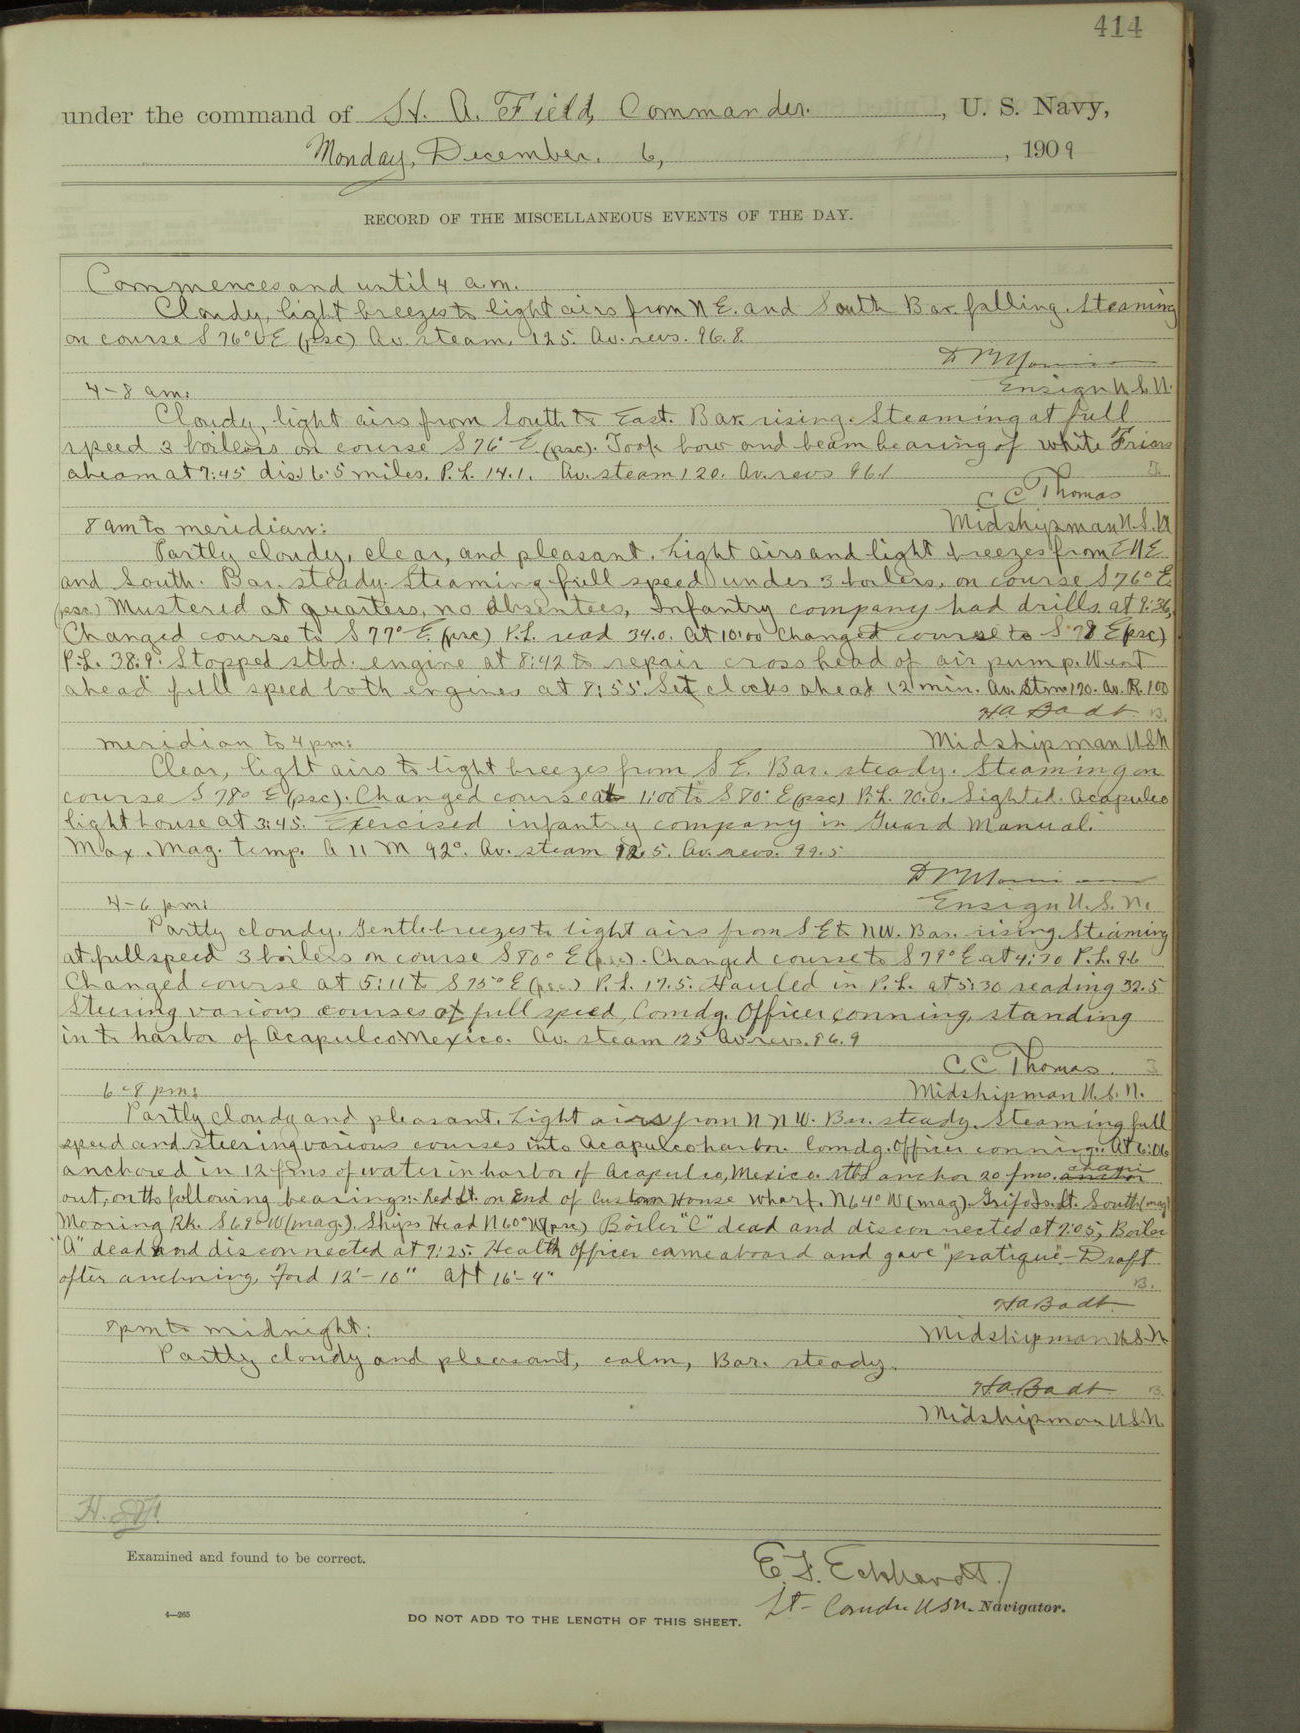 414
under the command of H. A. Field, Commander, U. S. Navy,
Monday, December 6, 1909
RECORD OF THE MISCELLANEOUS EVENTS OF THE DAY.
Commences and until 4 a.m.
Cloudy, light breezes to light airs from N E. and South Bar. falling. Steaming
on course S 76° E (psc) Av. steam. 125. Av. revs. 96.8
Ensign U.S.N.
4-8 am:
Cloudy, light airs from South to East. Bar rising. Steaming at full
speed 3 boilers on course S 76° E (psc). Took bow and beam bearing of white Friars
abeam at 7:45 dis. 6.5 miles. P.L. 14.1. Av. steam 120. Av. revs 96.1
C C Thomas
Midshipman U.S.N
8 am to meridian:
Partly cloudy, clear, and pleasant. Light airs and light breezes from ENE
and South. Bar. steady. Steaming full speed under 3 boilers, on course S 76° E.
(psc) Mustered at quarters, no absentees, Infantry company had drills. at 9:36,
Changed course to S 77° E. (psc) P.L. read 34.0. At 10:00 changed course to S 78 E (psc)
P.L. 38.9. Stopped stbd. engine at 8:42 to repair cross head of air pump. Went
ahead full speed both engines at 8:55. Set clocks ahead 12 min. Av. Stm 120. Av. R. 100
H.A. Badt B.
Midshipman USN
meridian to 4 pm:
Clear, light airs to light breezes from S E. Bar. steady. Steaming on
course S 78° E (psc). Changed course at 1:00 to S 80° E (psc) P.L. 70.0. Sighted Acapulco
light house at 3:45. Exercised infantry company in Guard Manual.
Max. Mag. temp. A 11 M 92°. Av. steam 125. Av. revs. 99.5
Ensign U.S.N.
4-6 pm:
Partly cloudy. Gentle breezes to light airs from S E to NW. Bar. rising. Steaming
at full speed 3 boilers on course S 80° E (psc). Changed course to S 79° E at 4:20 P.L. 9.6
Changed course at 5:11 to S 75° E (psc) P.L. 17.5. Hauled in P.L. at 5:30 reading 32.5
Steering various courses at full speed, Comdg. Officer conning, standing
in to harbor of Acapulco Mexico. Av. steam 125 Av. revs. 96.9
C C Thomas.
Midshipman U.S.N.
6-8 pm:
Partly cloudy and pleasant. Light airs from N N W. Bar. steady. Steaming full
speed and steering various courses into Acapulco harbor Comdg. Officer conning. At 6:06
anchored in 12 fms of water in harbor of Acapulco, Mexico. stbd anchor 20 fms. anchor chain
out, on the following bearings:- Red Lt. on end of Custom House wharf. N 64° W (mag). Grifo Is. Lt. South (mag)
Mooring Rk. S 69° W (mag). Ships Head N 60° W (psc) Boiler "C" dead and disconnected at 7:05, Boiler
"A" dead and disconnected at 7:25. Health Officer came aboard and gave "pratique" - Draft
after anchoring, Ford 12'-10" Aft 16'-4"
B.
H.A. Badt
Midshipman U.S.N
8 pm to midnight:
Partly cloudy and pleasant, calm, Bar. steady.
H.A. Badt B.
Midshipman U.S.N.
Examined and found to be correct.
E. F. Eckhardt.
Lt - Comdr U.S.N. Navigator.
4—265
DO NOT ADD TO THE LENGTH OF THIS SHEET.